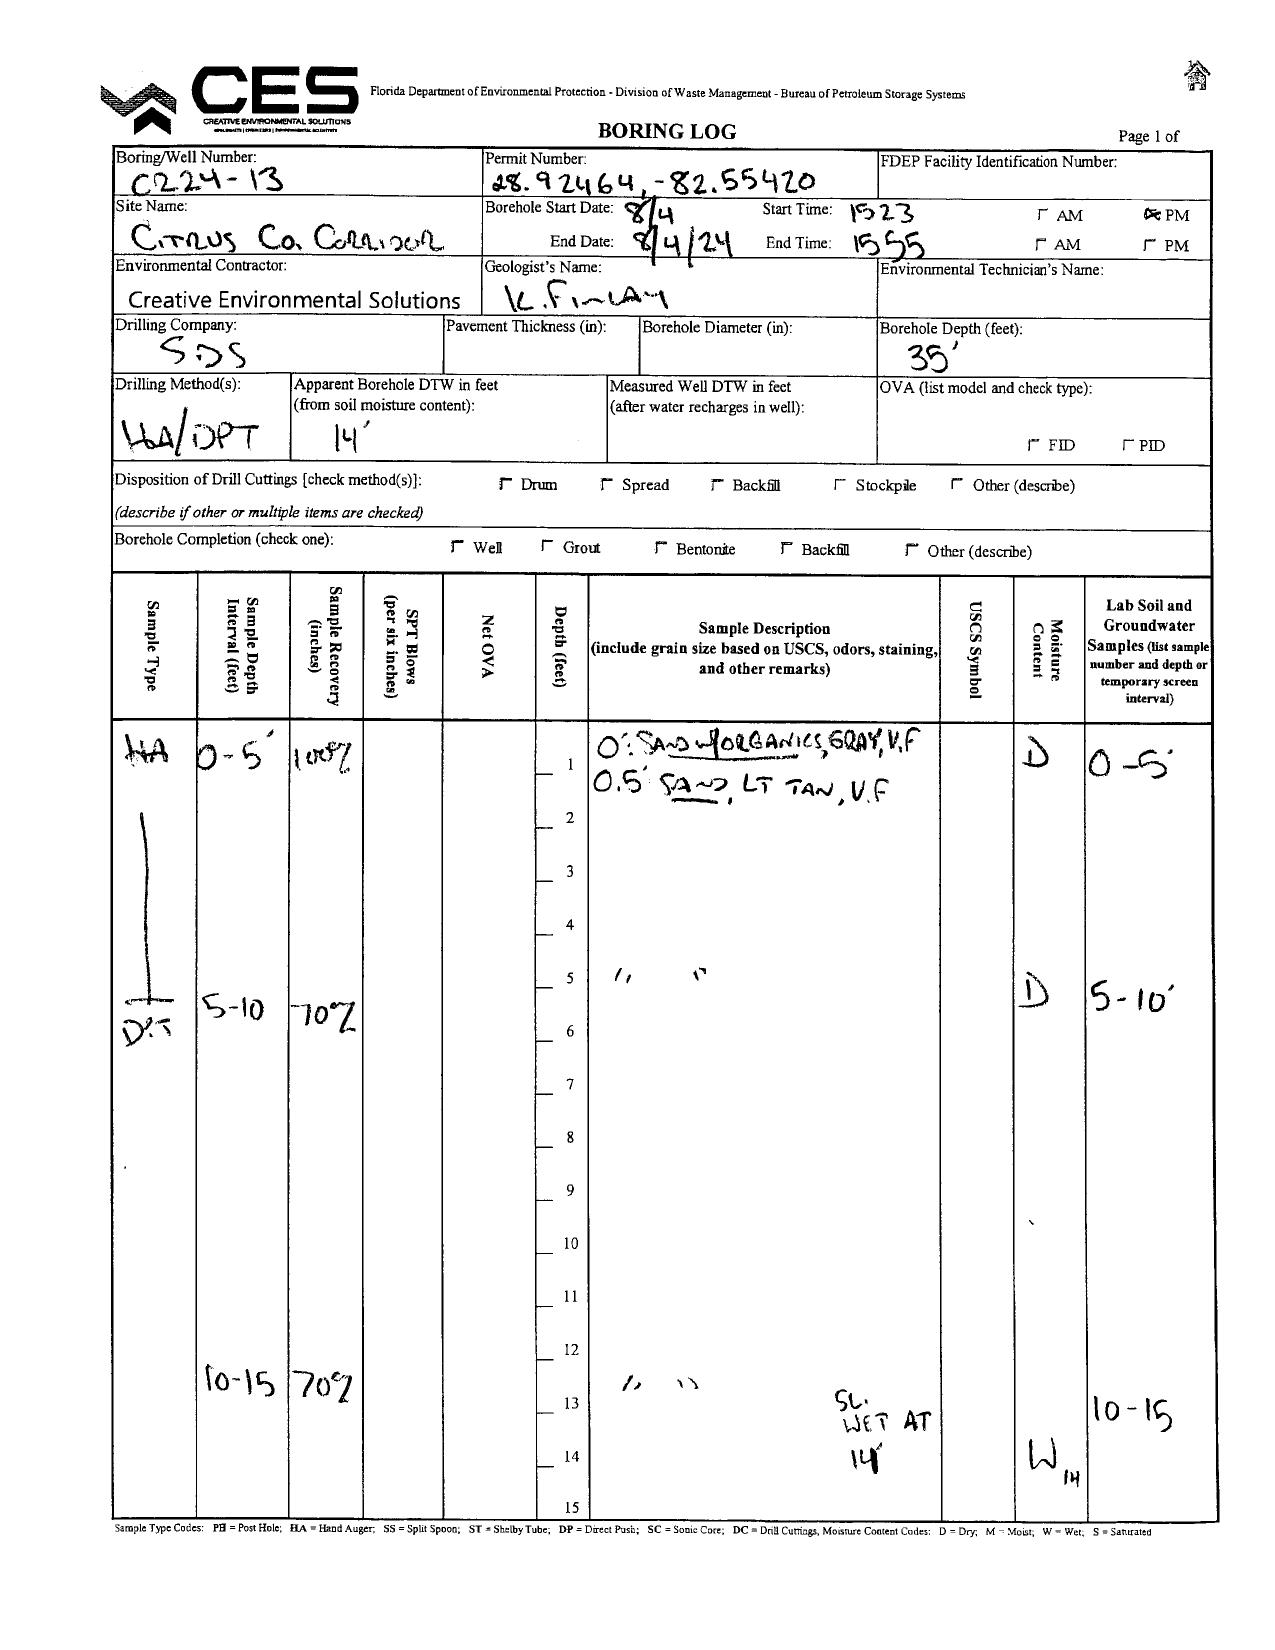 CES
CREATIVE ENVIRONMENTAL SOLUTIONS
Florida Department of Environmental Protection - Division of Waste Management - Bureau of Petroleum Storage Systems
BORING LOG
Page 1 of
Boring/Well Number:
C224-13
Permit Number:
28.92464, -82.55420
FDEP Facility Identification Number:
Site Name:
Citrus Co. Corridor
Borehole Start Date: 8/4
Start Time: 1523
AM
PM
End Date: 8/4/24
End Time: 1555
AM
PM
Environmental Contractor:
Creative Environmental Solutions
Geologist's Name:
K. Finlay
Environmental Technician's Name:
Drilling Company:
SDS
Pavement Thickness (in):
Borehole Diameter (in):
Borehole Depth (feet):
35'
Drilling Method(s):
HA/DPT
Apparent Borehole DTW in feet
(from soil moisture content):
14'
Measured Well DTW in feet
(after water recharges in well):
OVA (list model and check type):
FID
PID
Disposition of Drill Cuttings [check method(s)]:
Drum
Spread
Backfill
Stockpile
Other (describe)
(describe if other or multiple items are checked)
Borehole Completion (check one):
Well
Grout
Bentonite
Backfill
Other (describe)
Sample Type
Sample Depth
Interval (feet)
Sample Recovery
(inches)
SPT Blows
(per six inches)
Net OVA
Depth (feet)
Sample Description
(include grain size based on USCS, odors, staining,
and other remarks)
USCS Symbol
Moisture
Content
Lab Soil and
Groundwater
Samples (list sample
number and depth or
temporary screen
interval)
HA
0-5'
100%
0': SAND w/ORGANICS, GRAY, V.F
D
0-5'
1
0.5' SAND, LT TAN, V.F
2
3
4
5
" "
D
5-10'
5-10
70%
6
7
8
9
10
11
12
10-15
70%
" "
10-15
13
SL.
WET AT
14'
14
W 14
15
Sample Type Codes: PH = Post Hole; HA = Hand Auger; SS = Split Spoon; ST = Shelby Tube; DP = Direct Push; SC = Sonic Core; DC = Drill Cuttings, Moisture Content Codes: D = Dry; M = Moist; W = Wet; S = Saturated